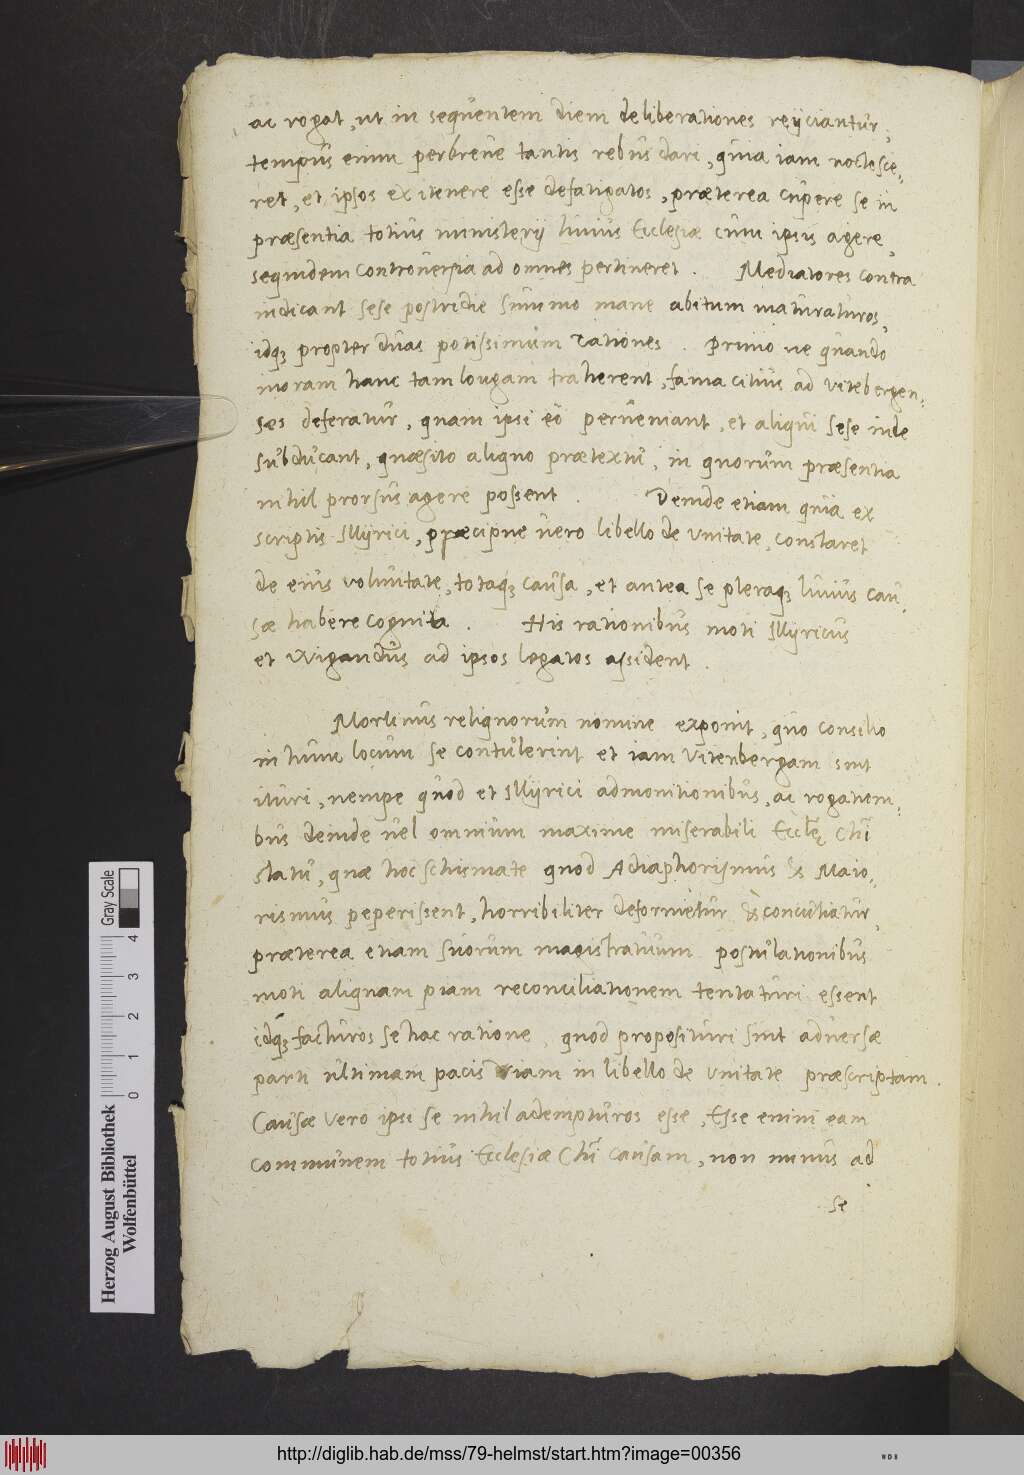 ac rogat, ut in sequentem diem deliberationes reijciantur,
tempus enim perbreve tantis rebus dari, quia iam noctesce-
ret, et ipsos ex itenere esse defatigatos, præterea cupere se in
præsentia totius ministerij huius Ecclesiæ cum ipsis agere,
sequidem controversia ad omnes pertineret. Mediatores contra
indicant sese postridie summo mane abitum maturaturos,
idq₃ propter duas potissimum rationes. Primo ne quando
moram hanc tam longam traherent, fama citius ad vitebergen-
ses deferatur, quam ipsi eo perveniant, et aliqui sese inde
subducant, quæsito aliquo prætextu, in quorum præsentia
nihil prorsus agere possent. Deinde etiam quia ex
scriptis Illyrici, præcipue vero libello de unitate, constaret
de eius voluntate, totaq₃ causa, et antea se pleraq₃ huius cau-
sæ habere cognita. His rationibus moti Illyricus
et Wigandus ad ipsos legatos assident.
Morlinus reliquorum nomine exponit, quo consilio
in hunc locum se contulerint et iam Vitenbergam sint
ituri, nempe quod et Illyrici admonitionibus, ac rogatiem-
bus deinde vel omnium maxime miserabili Ecclę Chri
statu, quæ hoc schismate quod Adiaphorismus & Maio-
rismus peperissent, horribiliter deformetur & conculcatur,
præterea etiam suorum magistratuum postulationibus
moti aliquam piam reconciliationem tentaturi essent
idq₃ facturos se hac ratione, quod proposituri sint adversæ
parti ultimam pacis viam in libello de unitate præscriptam.
Causæ vero ipsi se nihil adempturos esse, Esse enim eam
communem totius Ecclesiæ Chri causam, non minus ad
se
Gray Scale
0 1 2 3 4
Herzog August Bibliothek
Wolfenbüttel
http://diglib.hab.de/mss/79-helmst/start.htm?image=00356
WDB